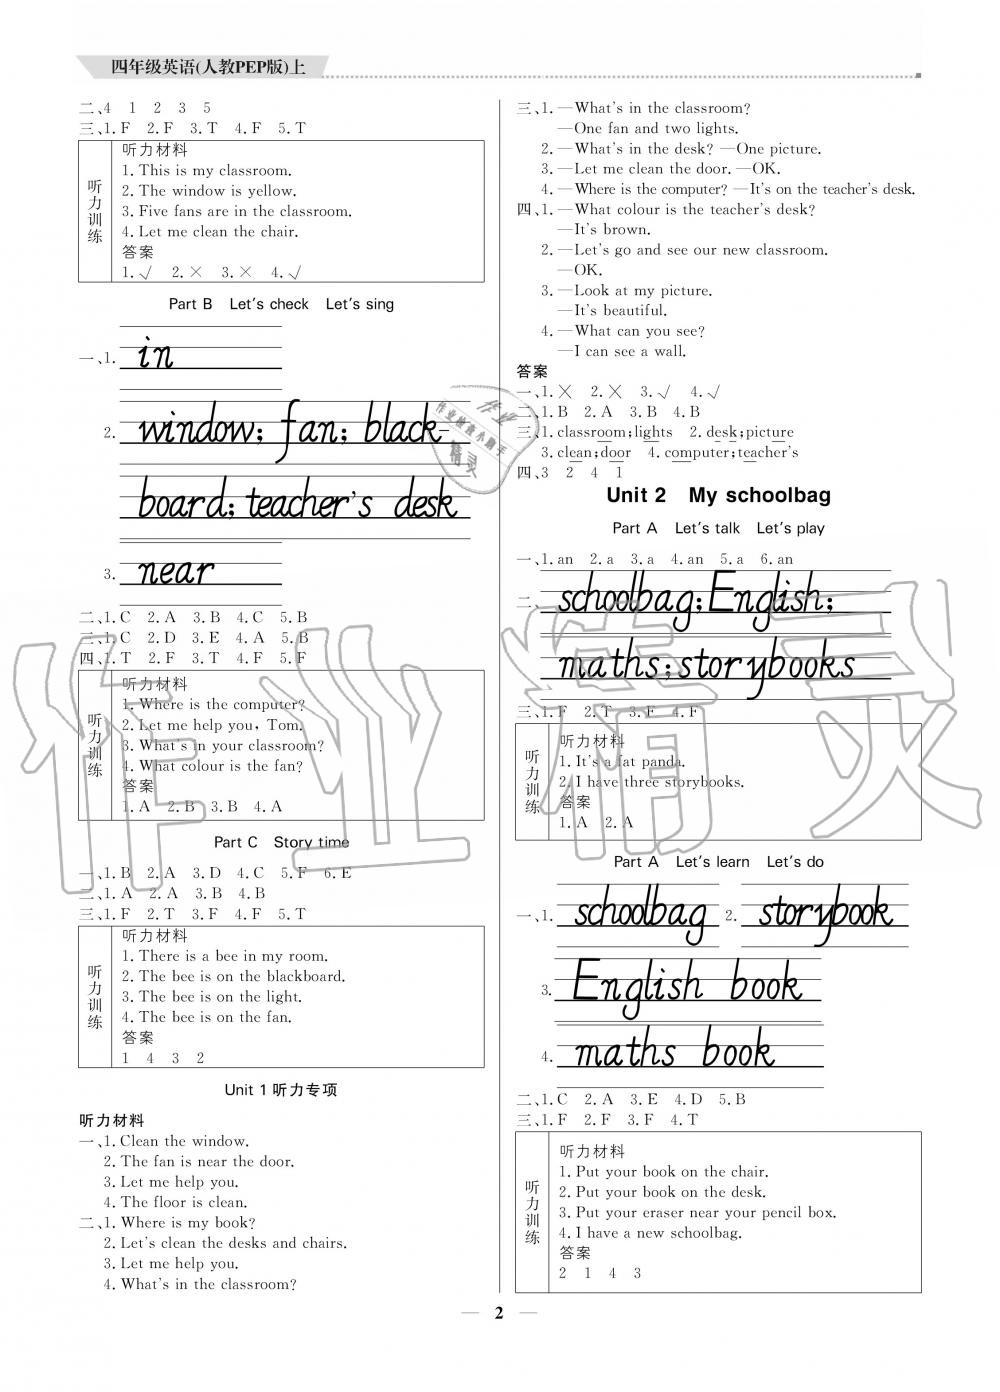 四年级英语(人教PEP版)上
二、4 1 2 3 5
三、1.F 2.F 3.T 4.F 5.T
听力训练
听力材料
1.This is my classroom.
2.The window is yellow.
3.Five fans are in the classroom.
4.Let me clean the chair.
答案
1.√ 2.× 3.× 4.√
Part B Let's check Let's sing
一、1. in
2. window; fan; black-
board; teacher's desk
3. near
二、1.C 2.A 3.B 4.C 5.B
三、1.C 2.D 3.E 4.A 5.B
四、1.T 2.F 3.T 4.F 5.F
听力训练
听力材料
1.Where is the computer?
2.Let me help you, Tom.
3.What's in your classroom?
4.What colour is the fan?
答案
1.A 2.B 3.B 4.A
Part C Story time
一、1.B 2.A 3.D 4.C 5.F 6.E
二、1.A 2.A 3.B 4.B
三、1.F 2.T 3.F 4.F 5.T
听力训练
听力材料
1.There is a bee in my room.
2.The bee is on the blackboard.
3.The bee is on the light.
4.The bee is on the fan.
答案
1 4 3 2
Unit 1 听力专项
听力材料
一、1.Clean the window.
2.The fan is near the door.
3.Let me help you.
4.The floor is clean.
二、1.Where is my book?
2.Let's clean the desks and chairs.
3.Let me help you.
4.What's in the classroom?
三、1.—What's in the classroom?
—One fan and two lights.
2.—What's in the desk? —One picture.
3.—Let me clean the door. —OK.
4.—Where is the computer? —It's on the teacher's desk.
四、1.—What colour is the teacher's desk?
—It's brown.
2.—Let's go and see our new classroom.
—OK.
3.—Look at my picture.
—It's beautiful.
4.—What can you see?
—I can see a wall.
答案
一、1.× 2.× 3.√ 4.√
二、1.B 2.A 3.B 4.B
三、1.classroom;lights 2.desk;picture
3.clean;door 4.computer;teacher's
四、3 2 4 1
Unit 2 My schoolbag
Part A Let's talk Let's play
一、1.an 2.a 3.a 4.an 5.a 6.an
二、schoolbag; English;
maths; storybooks
三、1.F 2.T 3.F 4.F
听力训练
听力材料
1.It's a fat panda.
2.I have three storybooks.
答案
1.A 2.A
Part A Let's learn Let's do
一、1. schoolbag 2. storybook
3. English book
4. maths book
二、1.C 2.A 3.E 4.D 5.B
三、1.F 2.F 3.F 4.T
听力训练
听力材料
1.Put your book on the chair.
2.Put your book on the desk.
3.Put your eraser near your pencil box.
4.I have a new schoolbag.
答案
2 1 4 3
— 2 —
作业精灵
作业
作业检查小助手
精灵